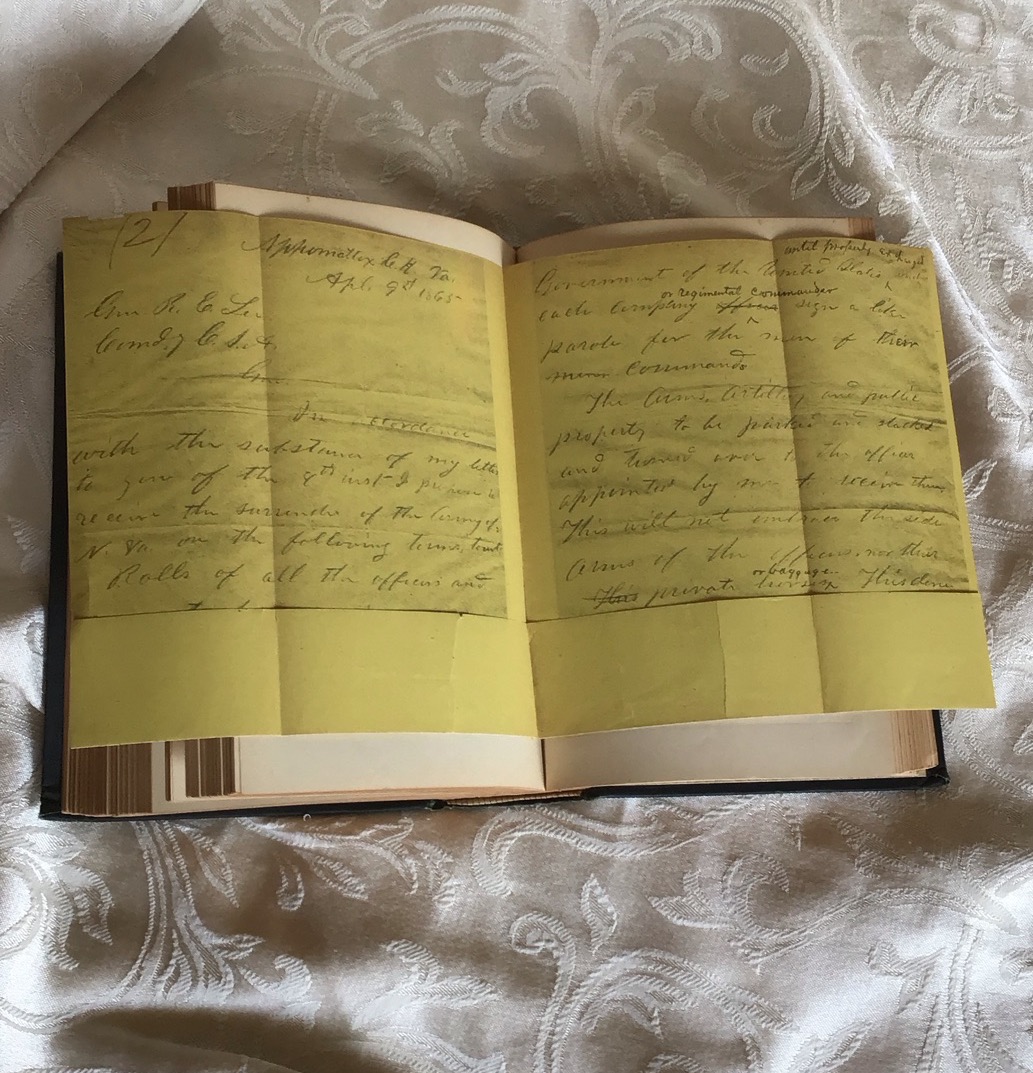 (2)
Appomattox C. H. Va.
Apl. 9th 1865
Gen R. E. Lee
Comd.g C. S. A.
Gen.
In accordance
with the substance of my letter
to you of the 8th inst. I propose to
receive the surrender of the Army of
N. Va. on the following terms, towit
Rolls of all the officers and
until properly exchanged
Government of the United States and
or regimental commander
each company officer sign a like
parole for the men of their
commands
The Arms, Artillery and public
property to be parked and stacked
and turned over to the officer
appointed by me to receive them.
This will not embrace the side
Arms of the officers, nor their
or baggage.
This private horses This done